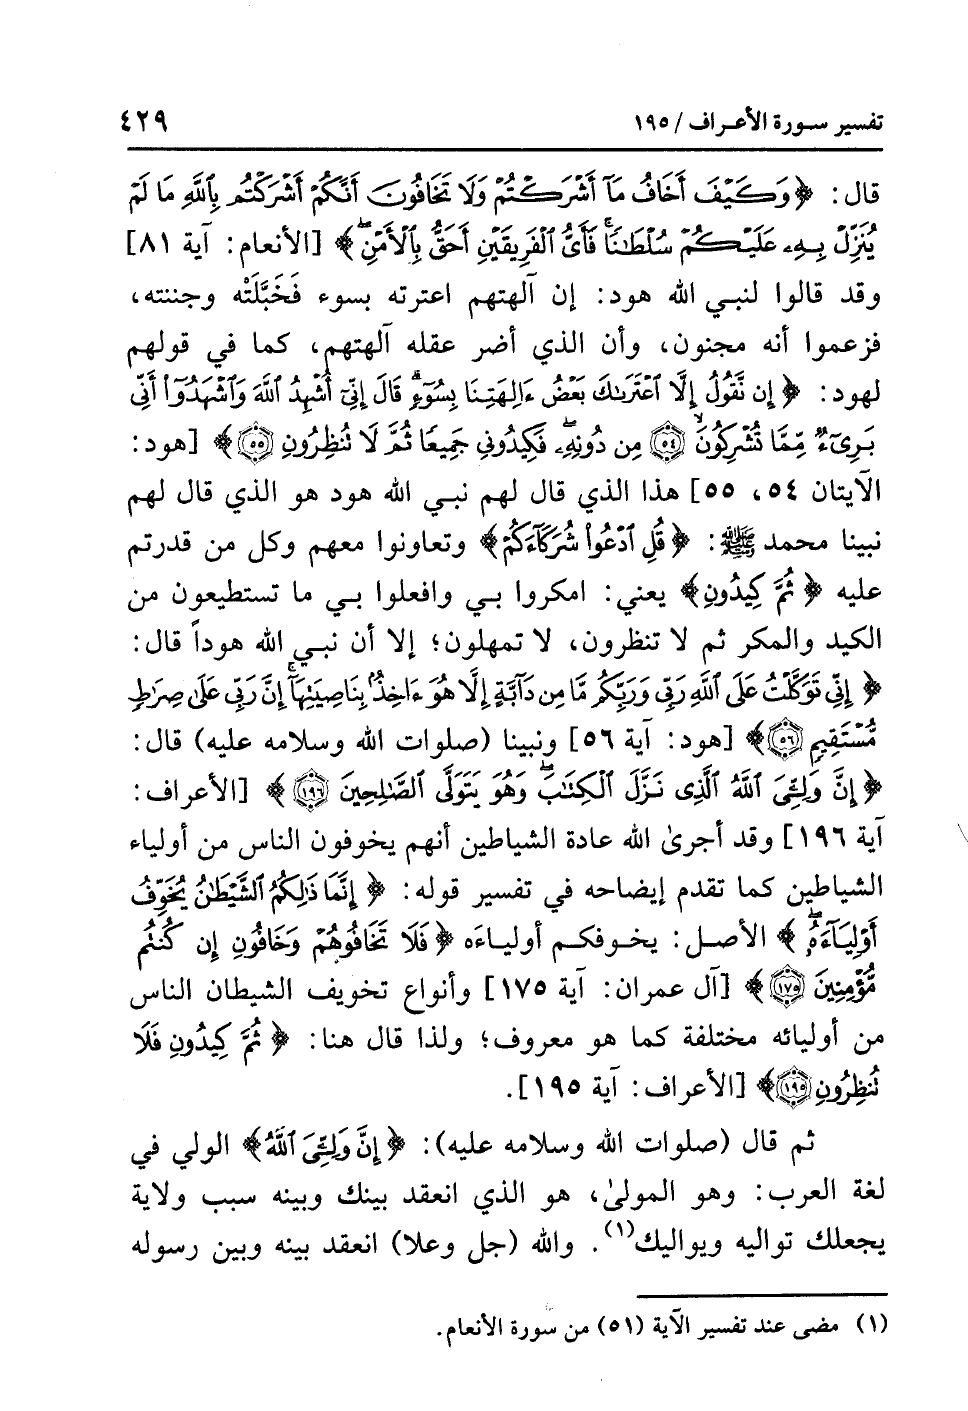 تفسير سورة الأعراف / ١٩٥
٤٢٩
قال: ﴿وَكَيْفَ أَخَافُ مَآ أَشْرَكْتُمْ وَلَا تَخَافُونَ أَنَّكُمْ أَشْرَكْتُم بِٱللَّهِ مَا لَمْ
يُنَزِّلْ بِهِۦ عَلَيْكُمْ سُلْطَٰنًاۚ فَأَىُّ ٱلْفَرِيقَيْنِ أَحَقُّ بِٱلْأَمْنِۖ﴾ [الأنعام: آية ٨١]
وقد قالوا لنبي الله هود: إن آلهتهم اعترته بسوء فَخَبَّلَتْه وجننته،
فزعموا أنه مجنون، وأن الذي أضر عقله آلهتهم، كما في قولهم
لهود: ﴿إِن نَّقُولُ إِلَّا ٱعْتَرَىٰكَ بَعْضُ ءَالِهَتِنَا بِسُوٓءٍۗ قَالَ إِنِّىٓ أُشْهِدُ ٱللَّهَ وَٱشْهَدُوٓا۟ أَنِّى
بَرِىٓءٌ مِّمَّا تُشْرِكُونَۙ ۝٥٤ مِن دُونِهِۦۖ فَكِيدُونِى جَمِيعًا ثُمَّ لَا تُنظِرُونِ ۝٥٥﴾ [هود:
الآيتان ٥٤، ٥٥] هذا الذي قال لهم نبي الله هود هو الذي قال لهم
نبينا محمد ﷺ: ﴿قُلِ ٱدْعُوا۟ شُرَكَآءَكُمْ﴾ وتعاونوا معهم وكل من قدرتم
عليه ﴿ثُمَّ كِيدُونِ﴾ يعني: امكروا بي وافعلوا بي ما تستطيعون من
الكيد والمكر ثم لا تنظرون، لا تمهلون؛ إلا أن نبي الله هوداً قال:
﴿إِنِّى تَوَكَّلْتُ عَلَى ٱللَّهِ رَبِّى وَرَبِّكُم مَّا مِن دَآبَّةٍ إِلَّا هُوَ ءَاخِذٌۢ بِنَاصِيَتِهَآۚ إِنَّ رَبِّى عَلَىٰ صِرَٰطٍ
مُّسْتَقِيمٍ ۝٥٦﴾ [هود: آية ٥٦] ونبينا (صلوات الله وسلامه عليه) قال:
﴿إِنَّ وَلِـِّۧىَ ٱللَّهُ ٱلَّذِى نَزَّلَ ٱلْكِتَٰبَۖ وَهُوَ يَتَوَلَّى ٱلصَّٰلِحِينَ ۝١٩٦﴾ [الأعراف:
آية ١٩٦] وقد أجرىٰ الله عادة الشياطين أنهم يخوفون الناس من أولياء
الشياطين كما تقدم إيضاحه في تفسير قوله: ﴿إِنَّمَا ذَٰلِكُمُ ٱلشَّيْطَٰنُ يُخَوِّفُ
أَوْلِيَآءَهُۥۖ﴾ الأصل: يخوفكم أولياءَه ﴿فَلَا تَخَافُوهُمْ وَخَافُونِ إِن كُنتُم
مُّؤْمِنِينَ ۝١٧٥﴾ [آل عمران: آية ١٧٥] وأنواع تخويف الشيطان الناس
من أوليائه مختلفة كما هو معروف؛ ولذا قال هنا: ﴿ثُمَّ كِيدُونِ فَلَا
تُنظِرُونِ ۝١٩٥﴾ [الأعراف: آية ١٩٥].
ثم قال (صلوات الله وسلامه عليه): ﴿إِنَّ وَلِـِّۧىَ ٱللَّهُ﴾ الولي في
لغة العرب: وهو المولىٰ، هو الذي انعقد بينك وبينه سبب ولاية
يجعلك تواليه ويواليك(١). والله (جل وعلا) انعقد بينه وبين رسوله
(١) مضى عند تفسير الآية (٥١) من سورة الأنعام.